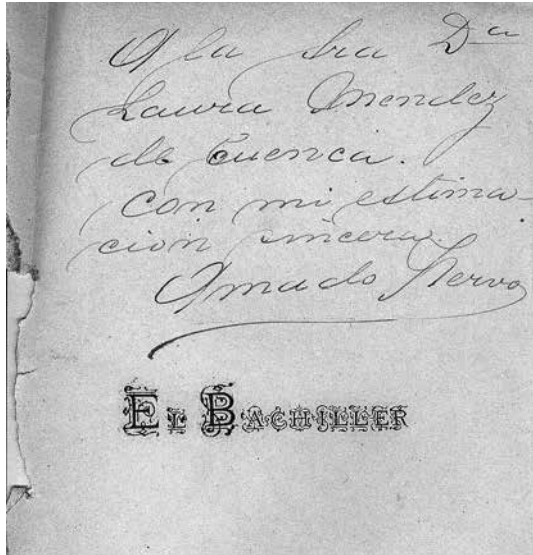 A la Sra Dª
Laura Mendez
de Cuenca.
con mi estima-
cion sincera.
Amado Nervo
EL BACHILLER